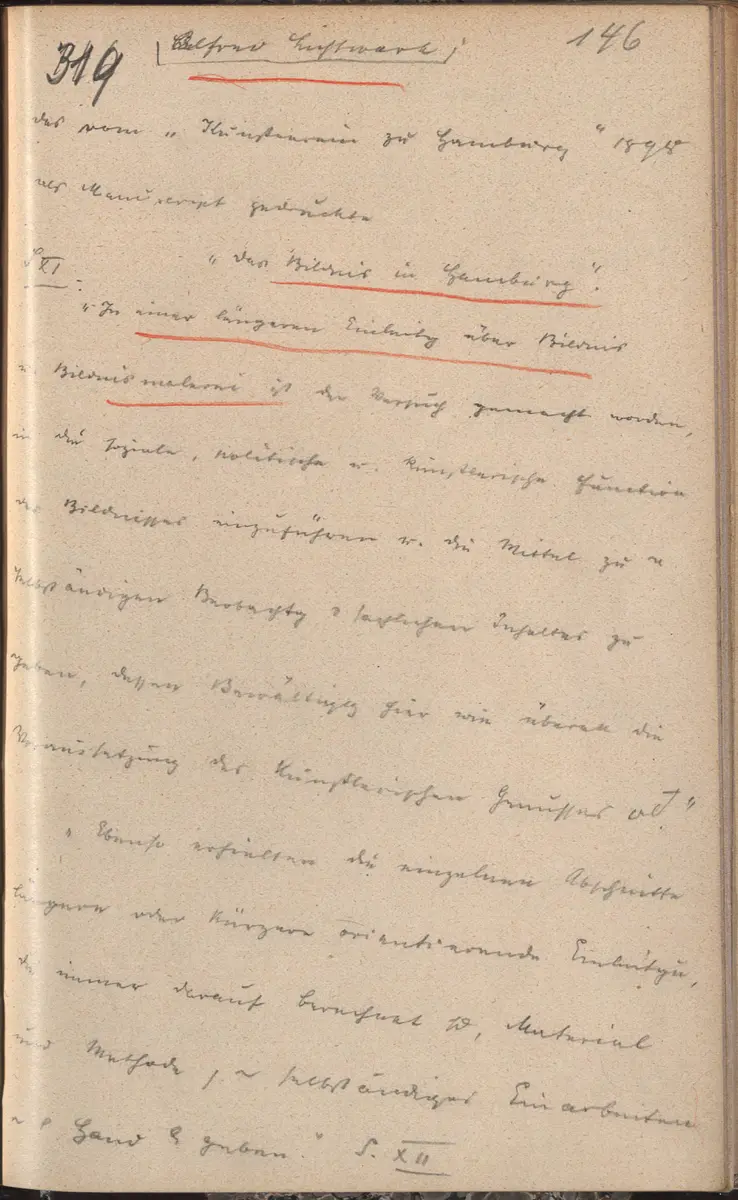 319 Alfred Lichtwark; 146
das vom „Kunstverein zu Hamburg" 1898
als Manuscript gedruckte
S XI. „das Bildnis in Hamburg".
„In einer längeren Einleitg über Bildnis
u. Bildnismalerei ist der Versuch gemacht worden,
in die soziale, politische u. künstlerische Function
des Bildnisses einzuführen u. die Mittel zu
selbständigen Beobachtg sachlichen Inhaltes zu
geben, dessen Bewältigg hier wie überall die
Voraussetzung des künstlerischen Genusses
„Ebenso erhielten die einzelnen Abschnitte
längere oder kürzere orientierende Einleitgn,
die immer darauf berechnet sd, Material
und Methode f. selbständiges Einarbeiten
Hand geben." S. XII